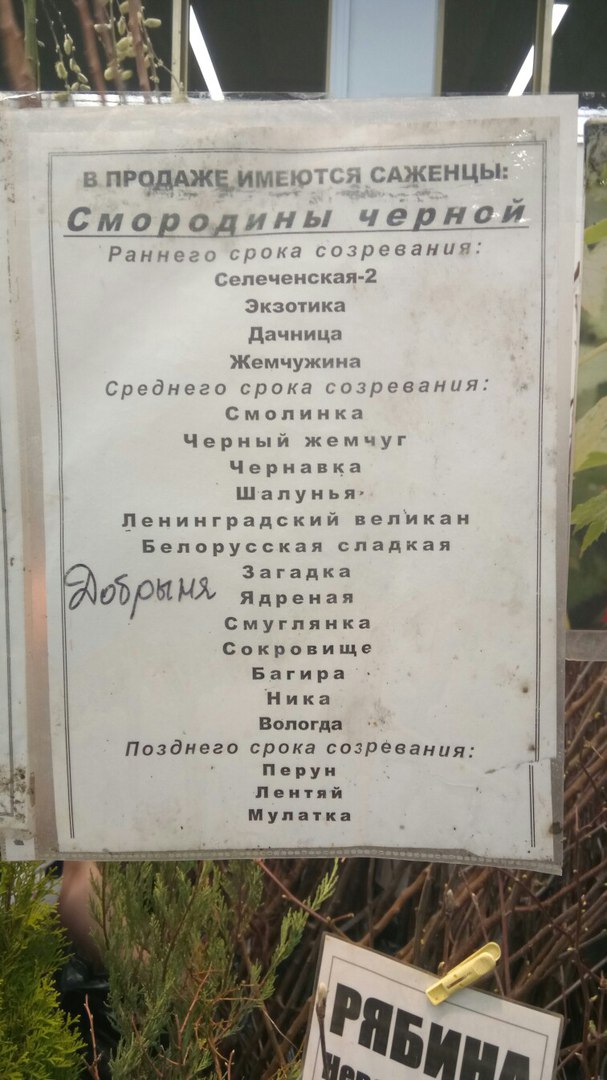 В ПРОДАЖЕ ИМЕЮТСЯ САЖЕНЦЫ:
Смородины черной
Раннего срока созревания:
Селеченская-2
Экзотика
Дачница
Жемчужина
Среднего срока созревания:
Смолинка
Черный жемчуг
Чернавка
Шалунья
Ленинградский великан
Белорусская сладкая
Загадка
Добрыня Ядреная
Смуглянка
Сокровище
Багира
Ника
Вологда
Позднего срока созревания:
Перун
Лентяй
Мулатка
РЯБИНА